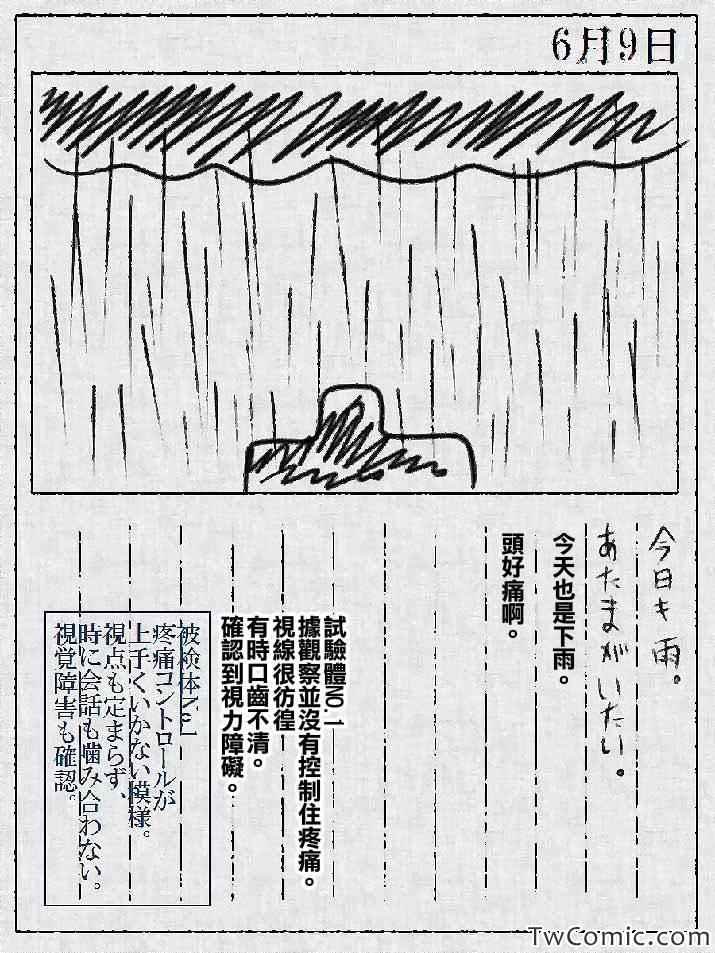 6月9日
今日キ雨。
あたまがいたい。
今天也是下雨。
頭好痛啊。
試驗體NO.1
據觀察並沒有控制住疼痛。
視線很彷徨
有時口齒不清。
確認到視力障礙。
被検体No.1
疼痛コントロールが
上手くいかない模様。
視点も定まらず、
時に会話も噛み合わない。
視覚障害も確認。
TwComic.com